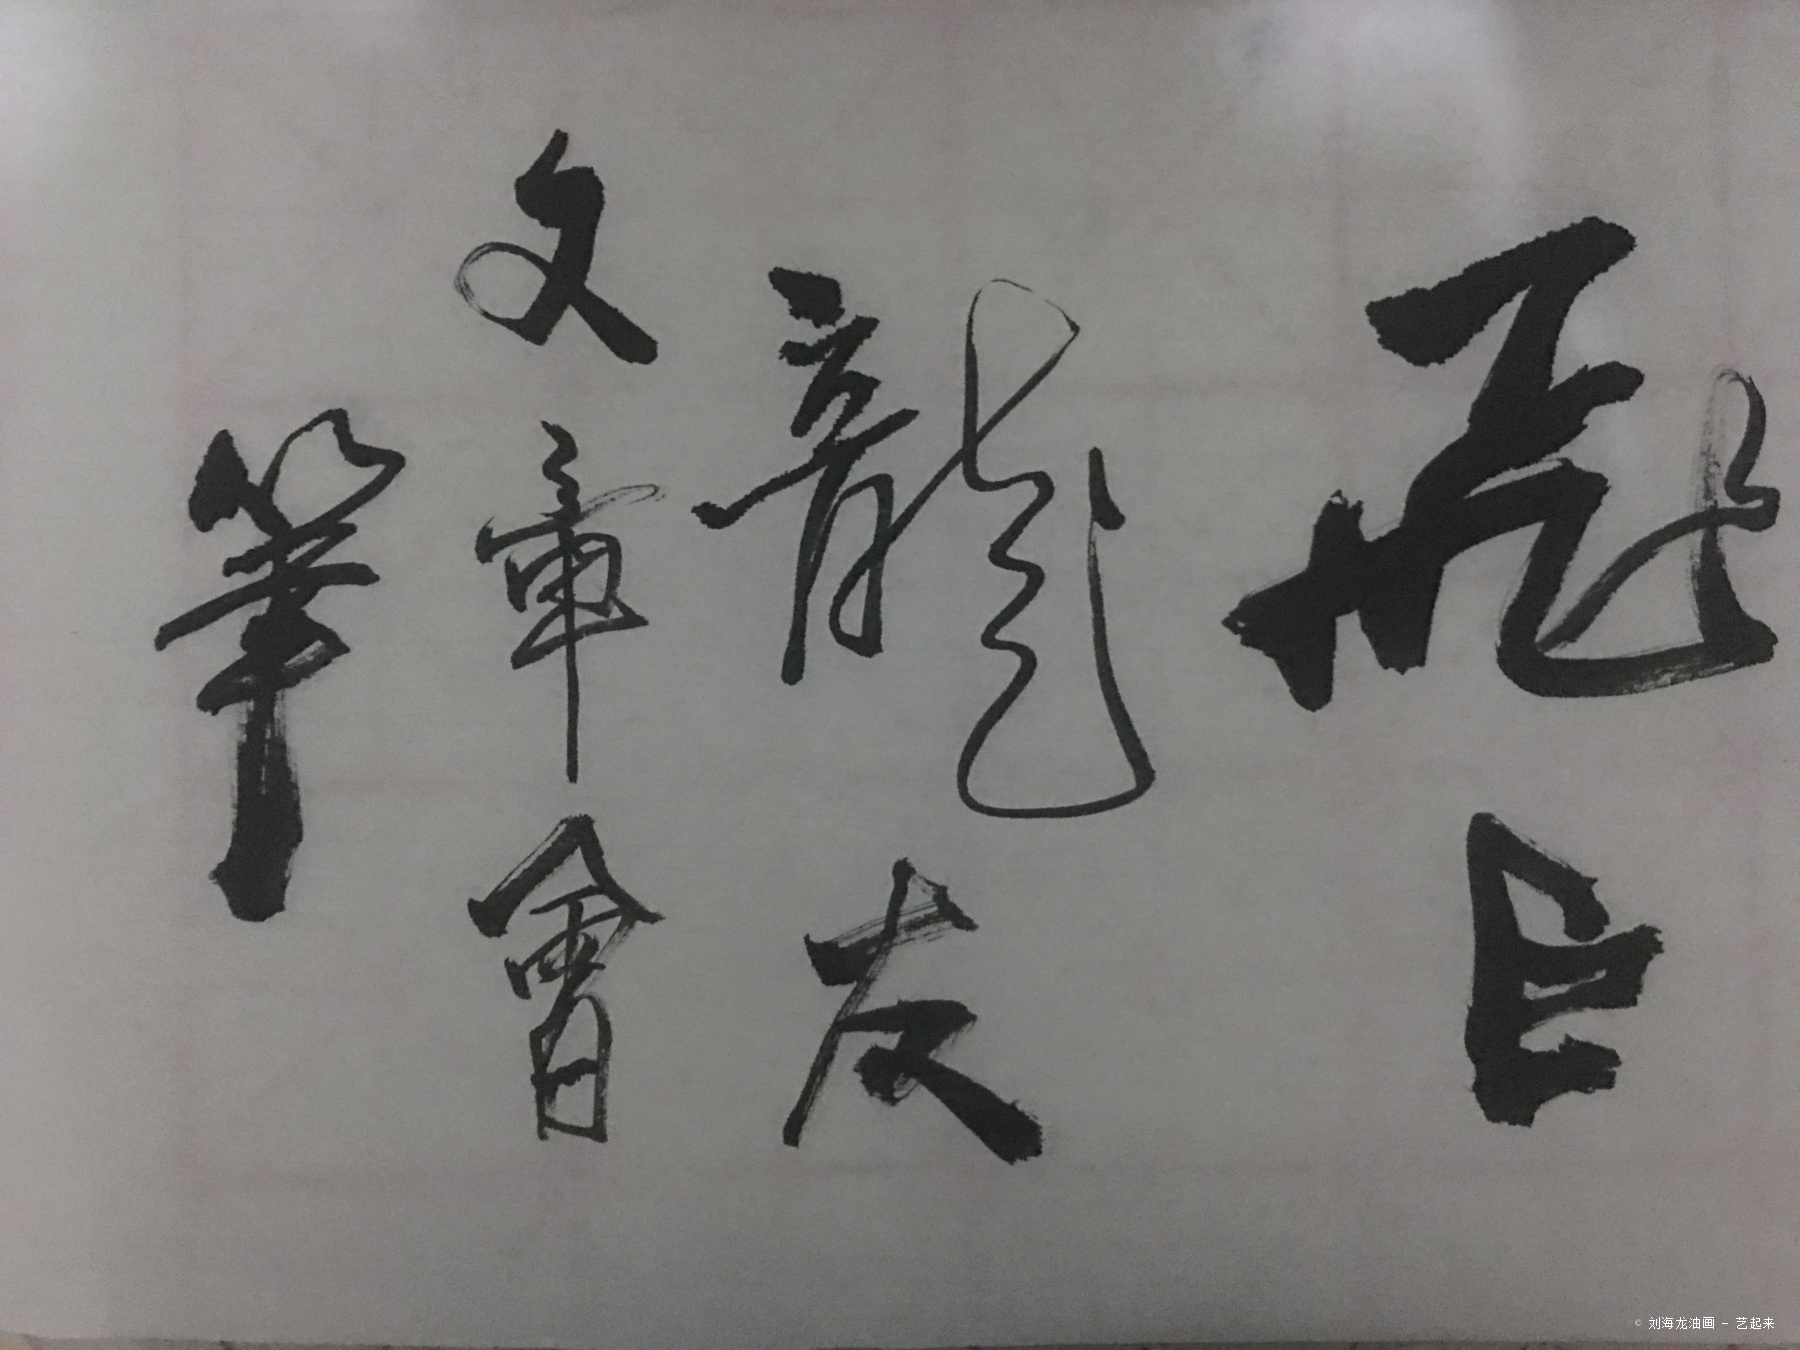 飛
龍友
文章會
筆
© 刘海龙油画 - 艺起来